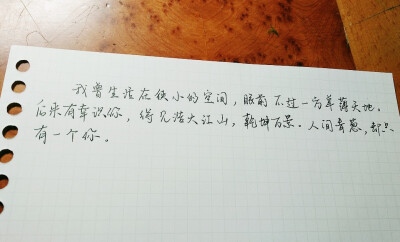 我曾生活在狭小的空间，眼前不过一方单薄天地。
后来有幸识你，得见浩大江山，乾坤万景。人间青葱，却只
有一个你。